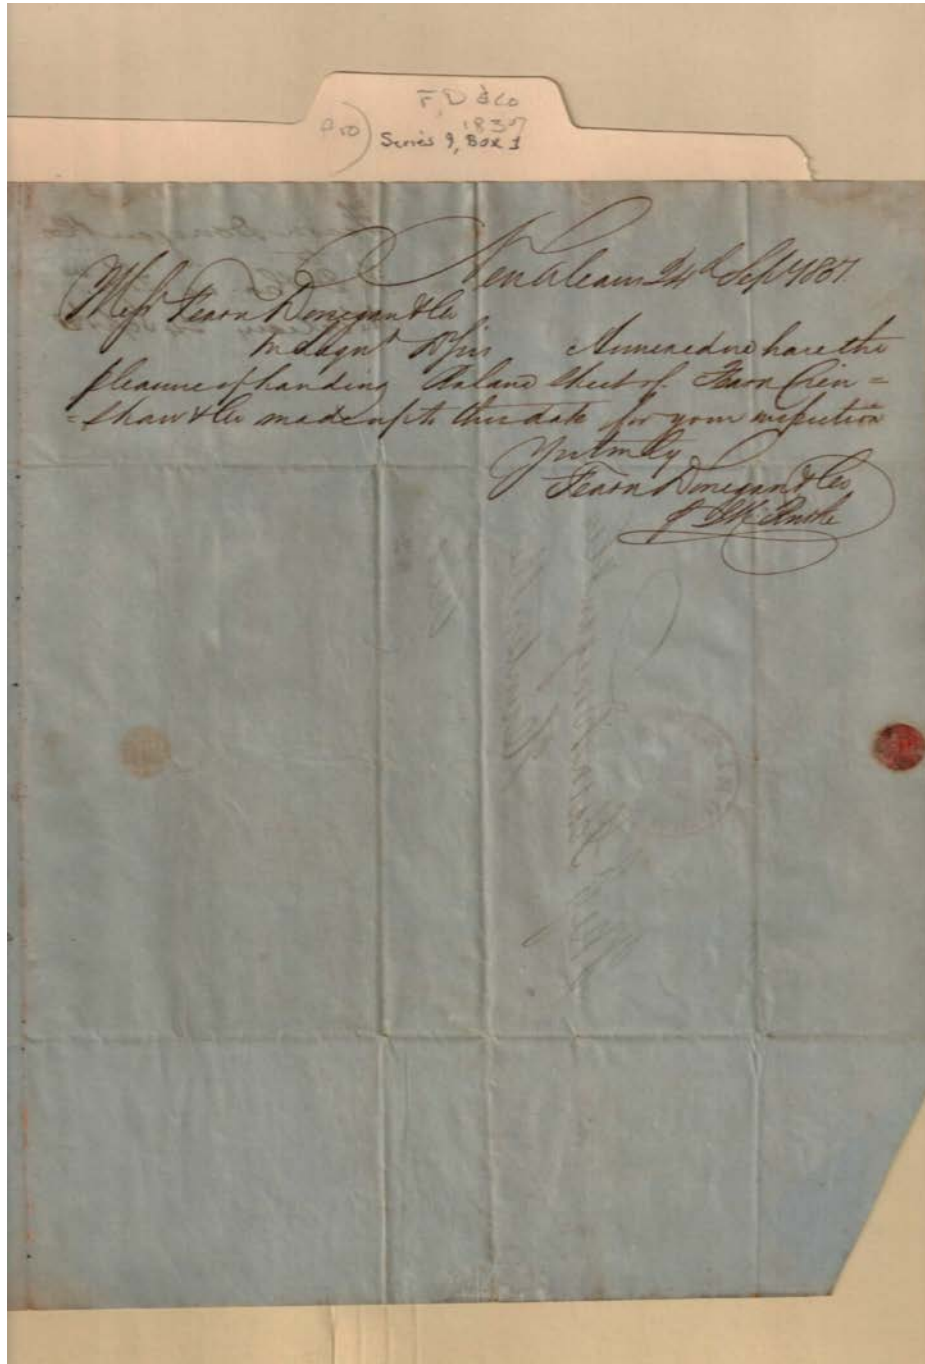 F, D & Co
1837
Series 9, Box 1
New Orleans 24th Sept 1837
Messrs Fearn Donegan & Co
Annexed we have the
pleasure of handing Balance Sheet of Fearn Cren=
=shaw & Co made up to this date for your inspection
Yrs truly
Fearn Donegan & Co